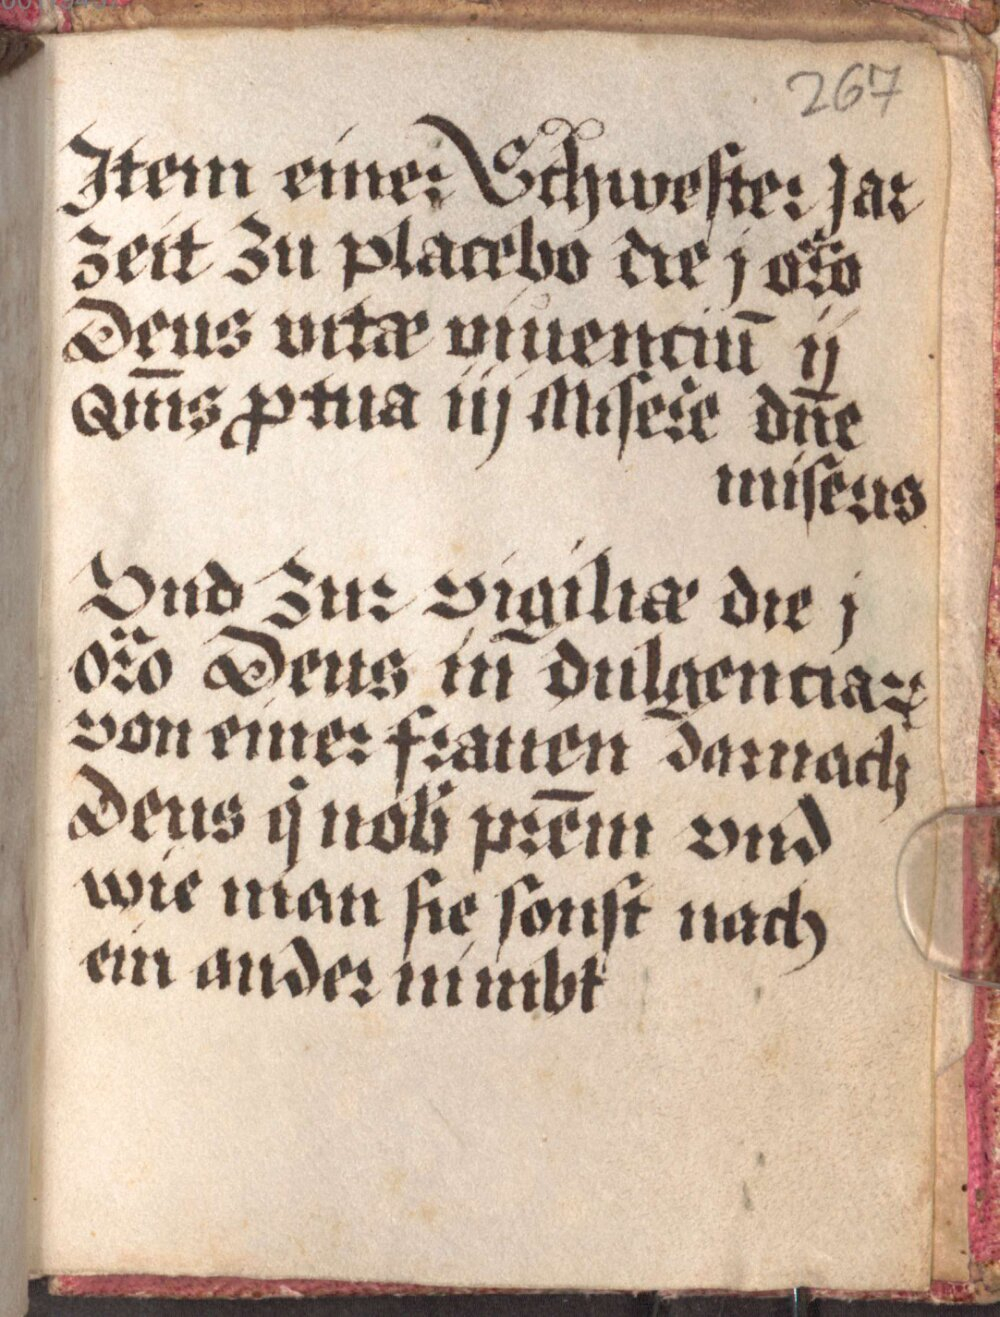 267
Item einer Schwester Jar
zeit zu placebo die j or̄o
Deus vitæ viuenciū ij
Qm̄s ꝓ tua iij Miser̄e dn̄e
miserꝰ
Vnd zur vigiliæ die j
or̄o Deus in dulgenciaꝝ
von einer frauen darnach
Deus q̇ nob̄ pr̄em vnd
wie man sie sonst nach
ein ander nimbt